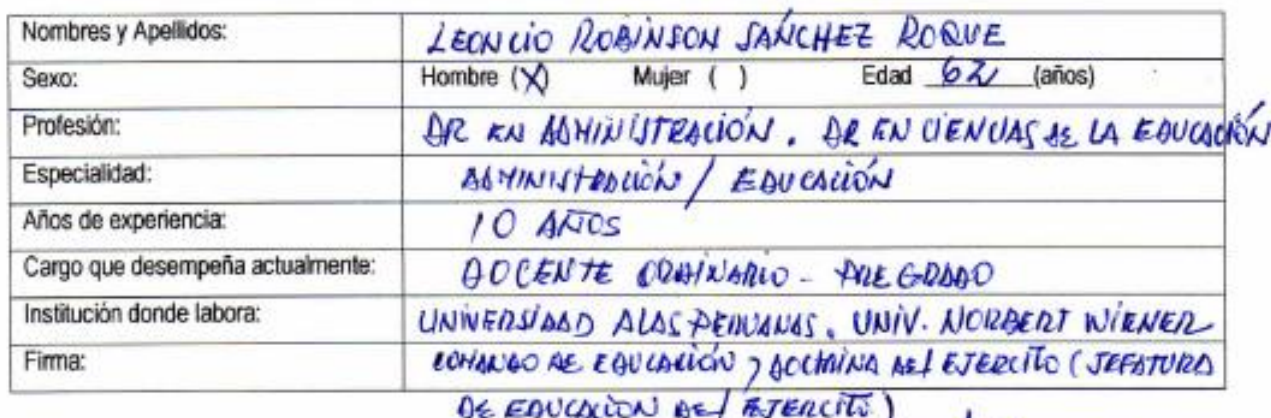 Nombres y Apellidos: LEONCIO ROBINSON SANCHEZ ROQUE
Sexo: Hombre (X) Mujer ( ) Edad 62 (años)
Profesión: DR EN ADMINISTRACIÓN. DR EN CIENCIAS DE LA EDUCACIÓN
Especialidad: ADMINISTRACIÓN / EDUCACIÓN
Años de experiencia: 10 AÑOS
Cargo que desempeña actualmente: DOCENTE ORDINARIO - PRE GRADO
Institución donde labora: UNIVERSIDAD ALAS PERUANAS. UNIV. NORBERT WIENER
Firma: COMANDO DE EDUCACIÓN y DOCTRINA DEL EJERCITO (JEFATURA
DE EDUCACIÓN DEL EJERCITO)